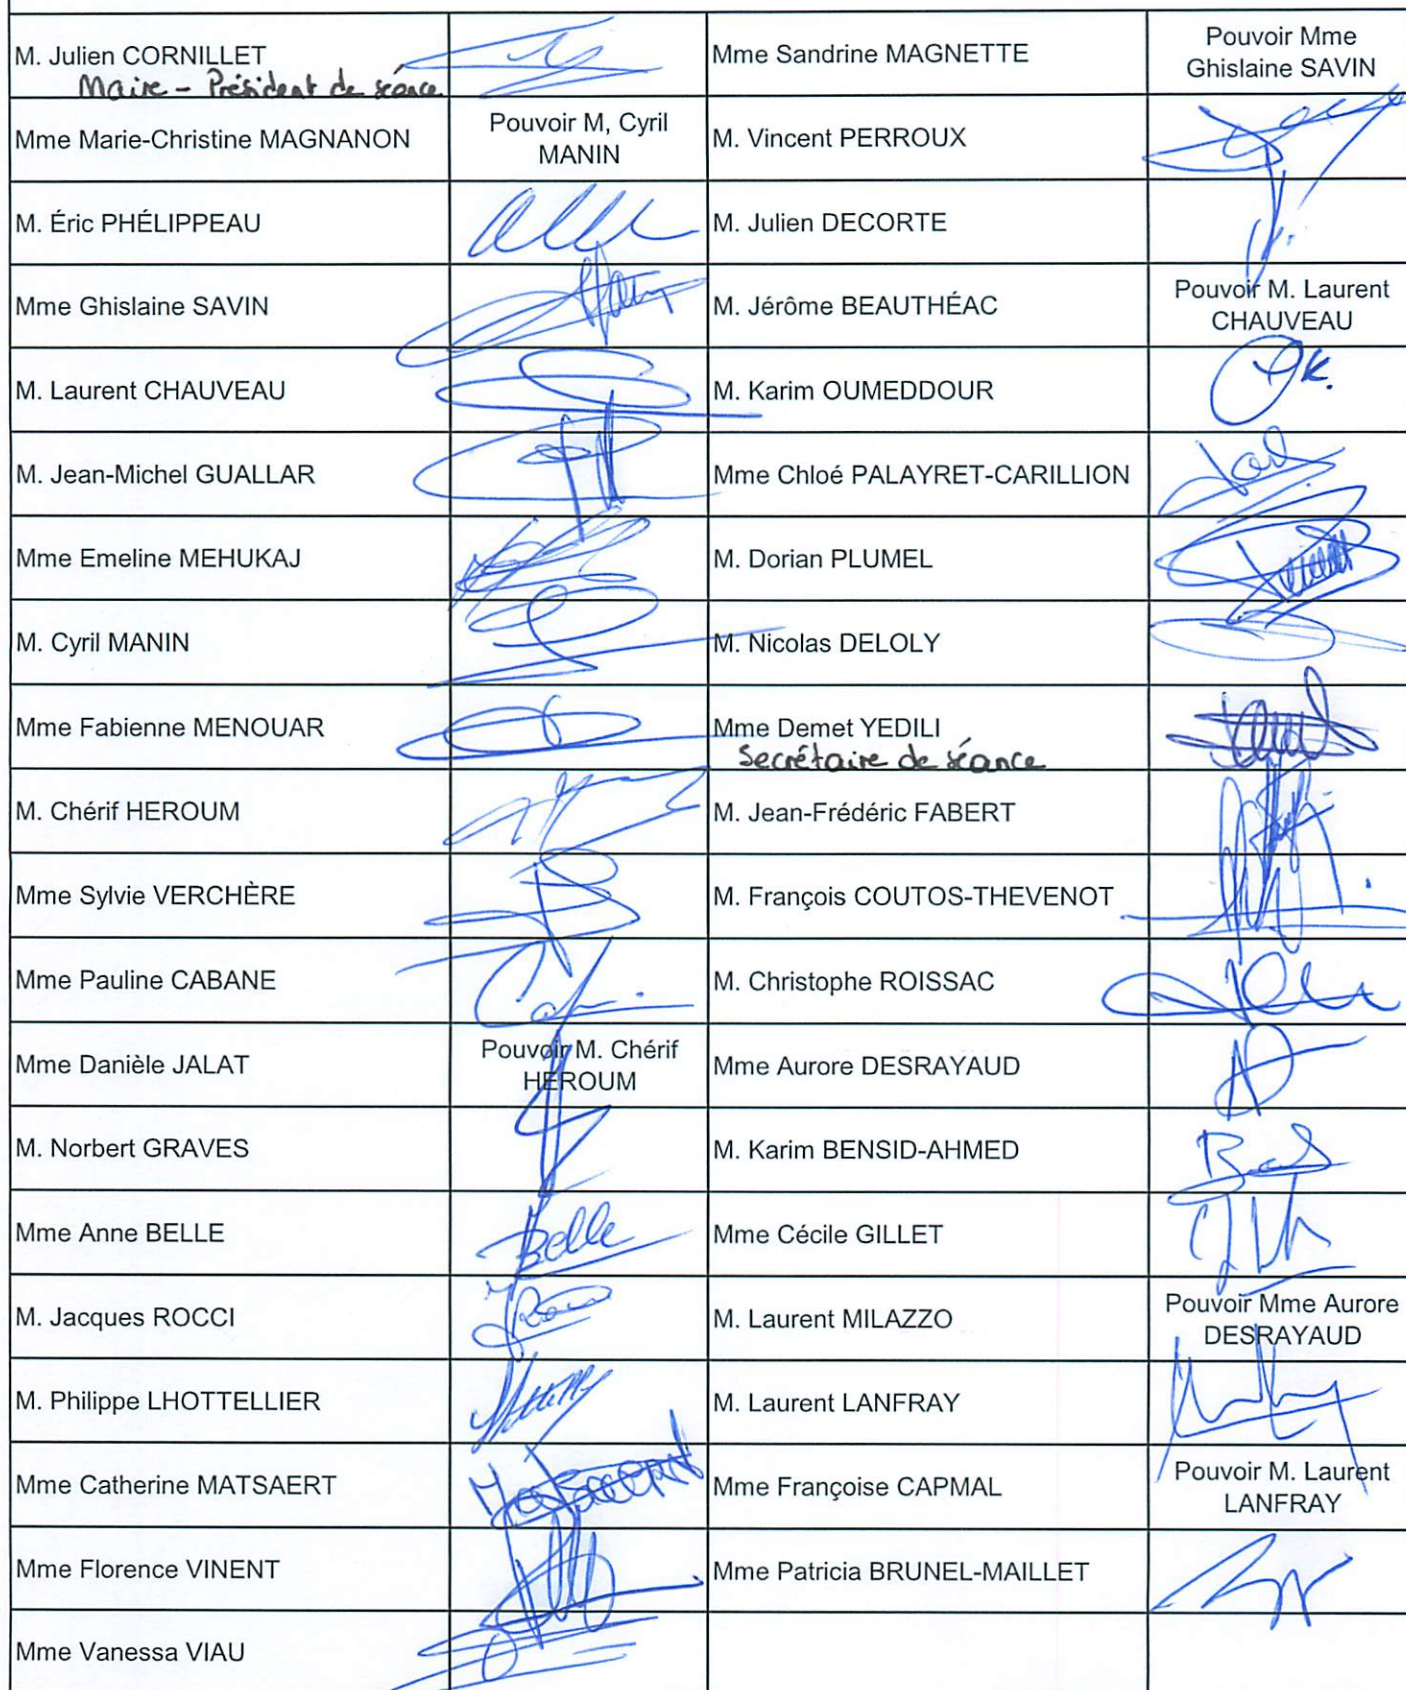 M. Julien CORNILLET
Maire - Président de séance
Mme Sandrine MAGNETTE
Pouvoir Mme
Ghislaine SAVIN
Mme Marie-Christine MAGNANON
Pouvoir M, Cyril
MANIN
M. Vincent PERROUX
M. Éric PHÉLIPPEAU
M. Julien DECORTE
Mme Ghislaine SAVIN
M. Jérôme BEAUTHÉAC
Pouvoir M. Laurent
CHAUVEAU
M. Laurent CHAUVEAU
M. Karim OUMEDDOUR
M. Jean-Michel GUALLAR
Mme Chloé PALAYRET-CARILLION
Mme Emeline MEHUKAJ
M. Dorian PLUMEL
M. Cyril MANIN
M. Nicolas DELOLY
Mme Fabienne MENOUAR
Mme Demet YEDILI
Secrétaire de séance
M. Chérif HEROUM
M. Jean-Frédéric FABERT
Mme Sylvie VERCHÈRE
M. François COUTOS-THEVENOT
Mme Pauline CABANE
M. Christophe ROISSAC
Mme Danièle JALAT
Pouvoir M. Chérif
HEROUM
Mme Aurore DESRAYAUD
M. Norbert GRAVES
M. Karim BENSID-AHMED
Mme Anne BELLE
Belle
Mme Cécile GILLET
M. Jacques ROCCI
M. Laurent MILAZZO
Pouvoir Mme Aurore
DESRAYAUD
M. Philippe LHOTTELLIER
M. Laurent LANFRAY
Mme Catherine MATSAERT
Mme Françoise CAPMAL
Pouvoir M. Laurent
LANFRAY
Mme Florence VINENT
Mme Patricia BRUNEL-MAILLET
Mme Vanessa VIAU